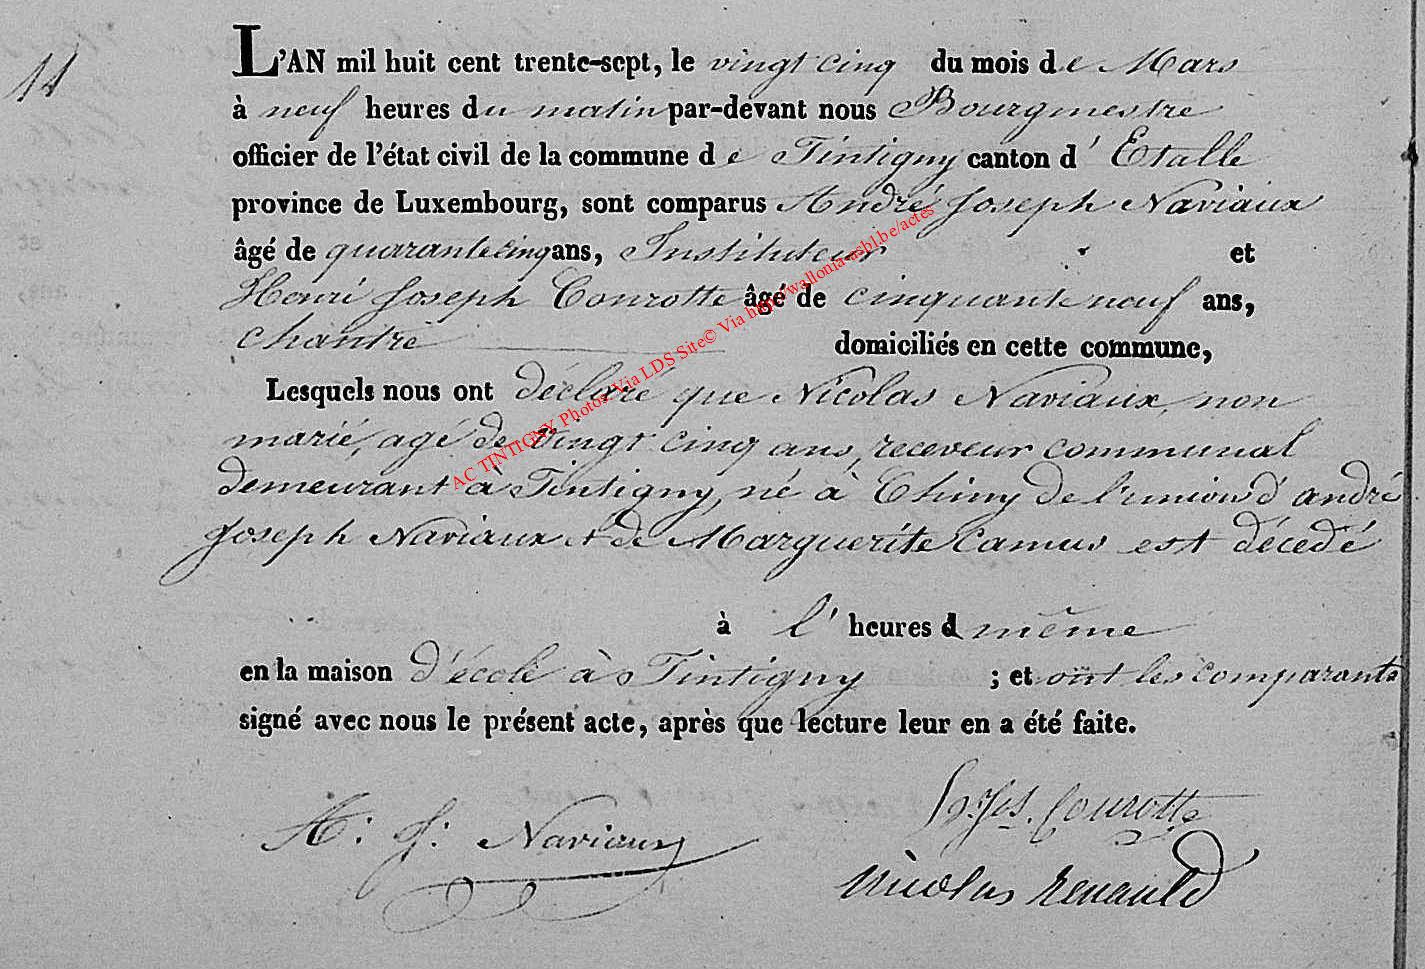 11
L'AN mil huit cent trente-sept, le vingt cinq du mois de Mars
à neuf heures du matin par-devant nous Bourgmestre
officier de l'état civil de la commune de Tintigny canton d'Etalle
province de Luxembourg, sont comparus André Joseph Naviaux
âgé de quarante cinq ans, Instituteur et
Henri Joseph Courotte âgé de cinquante neuf ans,
chantre domiciliés en cette commune,
Lesquels nous ont déclaré que Nicolas Naviaux, non
marié, agé de vingt cinq ans, receveur communal
demeurant à Tintigny, né à Chiny de l'union d'andré
Joseph Naviaux et de Marguerite Camus est décédé
à l' heures d même
en la maison d'école à Tintigny ; et ont les comparants
signé avec nous le présent acte, après que lecture leur en a été faite.
A: J: Naviaux
Courotte
Nicolas Renauld
AC TINTIGNY Photos Via LDS Site© Via http://wallonia-asbl.be/actes